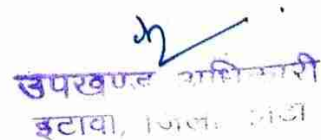 उपखण्ड अधिकारी
इटावा, जिला